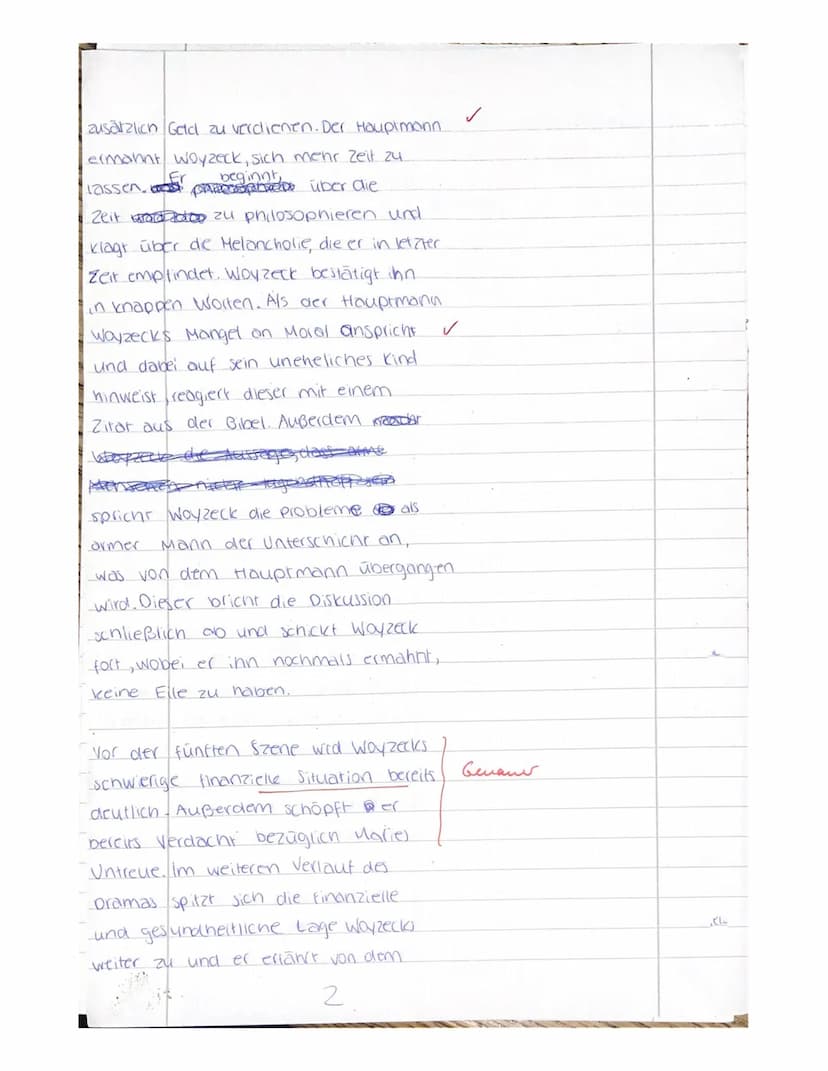 zusätzlich Geld zu verdienen. Der Hauptmann ✓
ermahnt Woyzeck, sich mehr Zeit zu
lassen. Er beginnt, über die
Zeit zu philosophieren und
klagt über de Melancholie, die er in letzter
Zeit empfindet. Woyzeck bestätigt ihn
in knappen Worten. Als der Hauptmann
Woyzecks Mangel an Moral anspricht ✓
und dabei auf sein uneheliches Kind
hinweist, reagiert dieser mit einem
Zitat aus der Bibel. Außerdem
Woyzeck die Aussage, dass arme
Menschen nicht
spricht Woyzeck die Probleme als
armer Mann der Unterschicht an,
was von dem Hauptmann übergangen
wird. Dieser bricht die Diskussion
schließlich ab und schickt Woyzeck
fort, wobei er ihn nochmals ermahnt,
keine Eile zu haben.
Vor der fünften Szene wird Woyzecks
schwierige finanzielle Situation bereits Genauer
deutlich. Außerdem schöpft er
bereits Verdacht bezüglich Maries
Untreue. Im weiteren Verlauf des
Dramas spitzt sich die finanzielle
und gesundheitliche Lage Woyzecks
weiter zu und er erfährt von dem
2